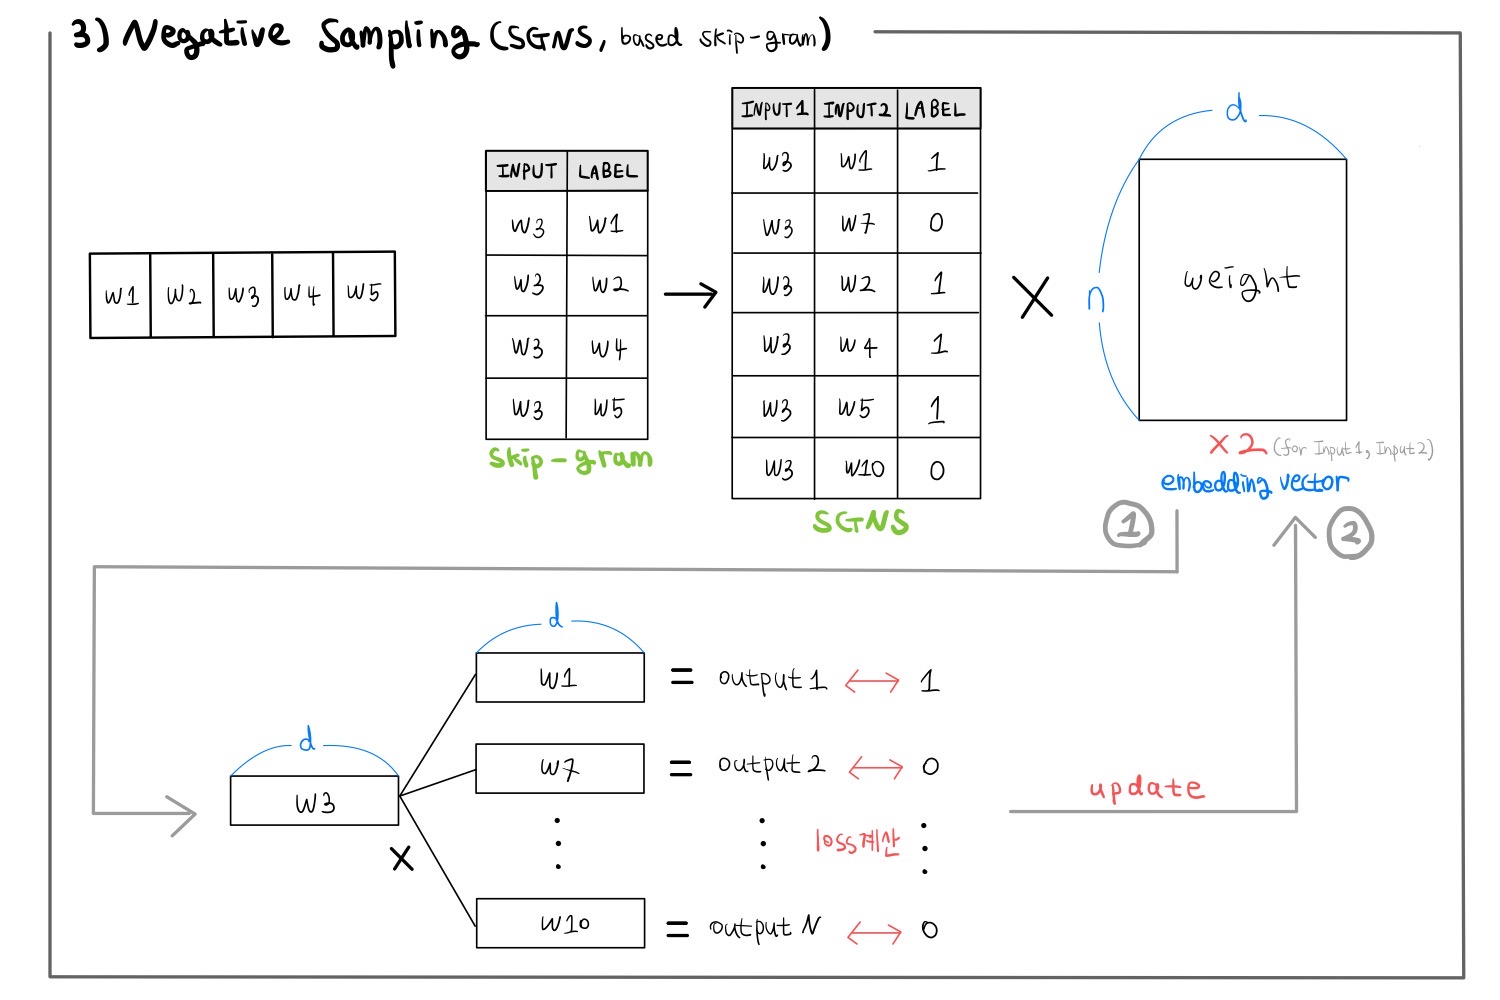 3) Negative Sampling (SGNS, based skip-gram)
W1 W2 W3 W4 W5
INPUT LABEL
W3 W1
W3 W2
W3 W4
W3 W5
Skip-gram
INPUT1 INPUT2 LABEL
W3 W1 1
W3 W7 0
W3 W2 1
W3 W4 1
W3 W5 1
W3 W10 0
SGNS
×
d
n
weight
×2 (for Input1, Input2)
embedding vector
1
2
d
W3
×
d
W1 = output1 1
W7 = output2 0
loss계산
W10 = output N 0
update